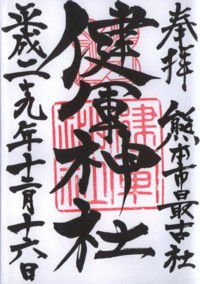 奉拝 熊本市最古社
健軍神社
平成二十九年十二月十六日
健軍
神社